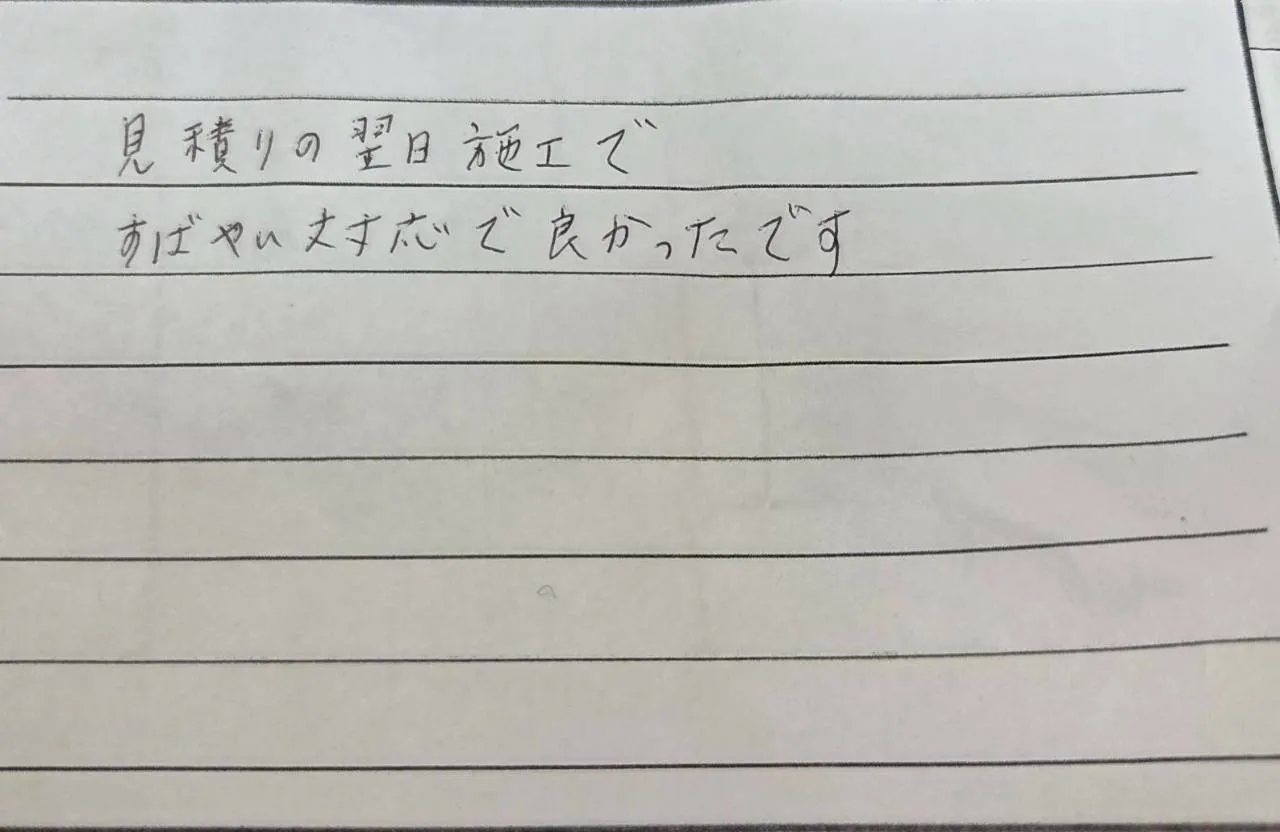 見積りの翌日施工で
すばやい対応で良かったです